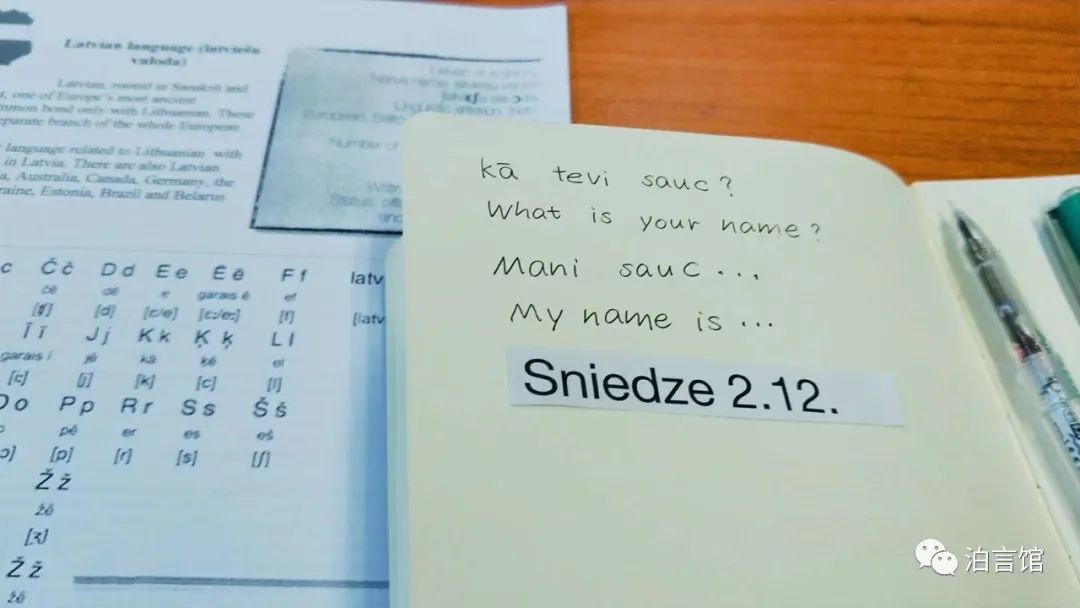 Latvian language (latviešu
valoda)
Latvian, rooted in Sanskrit and
one of Europe's most ancient
common bond only with Lithuanian. These
separate branch of the whole European
language related to Lithuanian with
in Latvia. There are also Latvian
Australia, Canada, Germany, the
Estonia, Brazil and Belarus
Number of
Status:
c Č č D d E e Ē ē F f
čē dē e garais ē ef
[ʧ] [d] [ɛ/e] [ɛ:/e:] [f]
Ī ī J j K k Ķ ķ L l
garais ī jē kā ķē el
[j] [k] [c] [l]
O o P p R r S s Š š
pē er es eš
[p] [r] [s] [ʃ]
Ž ž
žē
[ʒ]
Ž ž
žē
latv
[latv
kā tevi sauc?
What is your name?
Mani sauc...
My name is...
Sniedze 2.12.
泊言馆